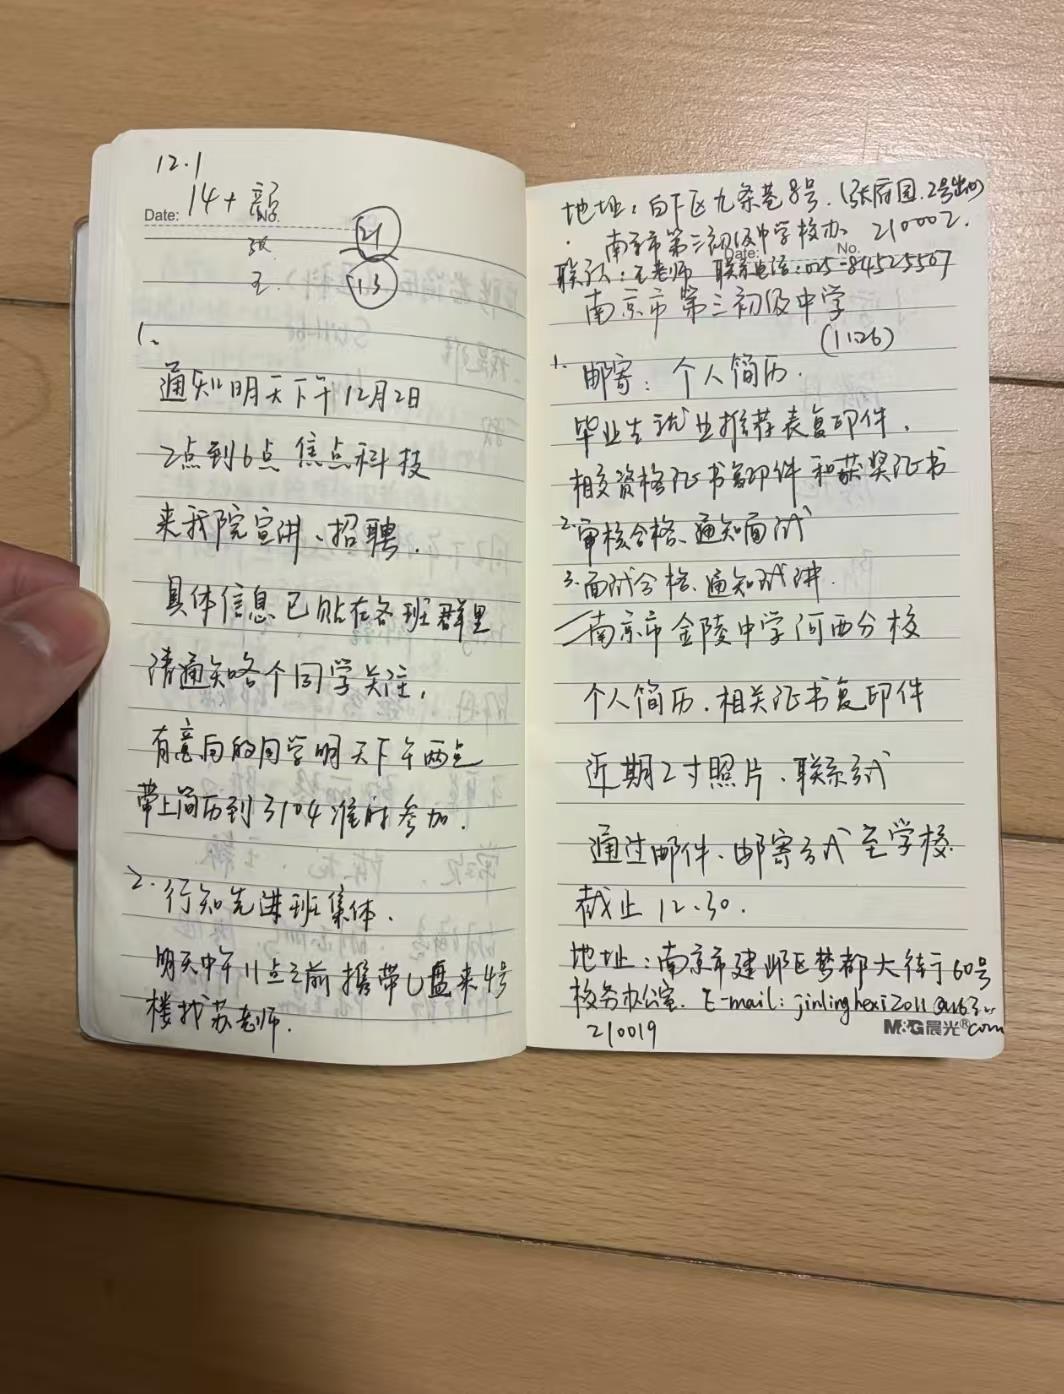 12.1
Date: 14+ 韵 No.
张
王
21
13
1、
通知明天下午12月2日
2点到6点 焦点科技
来我院宣讲、招聘.
具体信息已贴在各班群里
请通知各个同学关注,
有意向的同学明天下午两点
带上简历到3104准时参加.
2. 行知先进班集体.
明天中午11点之前携带U盘来4号
楼找苏老师.
地址: 白下区九条巷8号.(张府园.2号出口)
南京市第三初级中学校办. 210002.
Date: No.
联系人: 王老师 联系电话: 025-84525507
南京市第三初级中学
(1126)
1. 邮寄: 个人简历.
毕业生就业推荐表复印件.
相关资格证书复印件和获奖证书
2. 审核合格、通知面试
3. 面试合格、通知试讲.
南京市金陵中学河西分校
个人简历.相关证书复印件
近期2寸照片.联系方式
通过邮件、邮寄方式至学校
截止12.30.
地址: 南京市建邺区梦都大街60号
校务办公室. E-mail: jinlinghexi2011@163.
com
210019
M&G晨光®